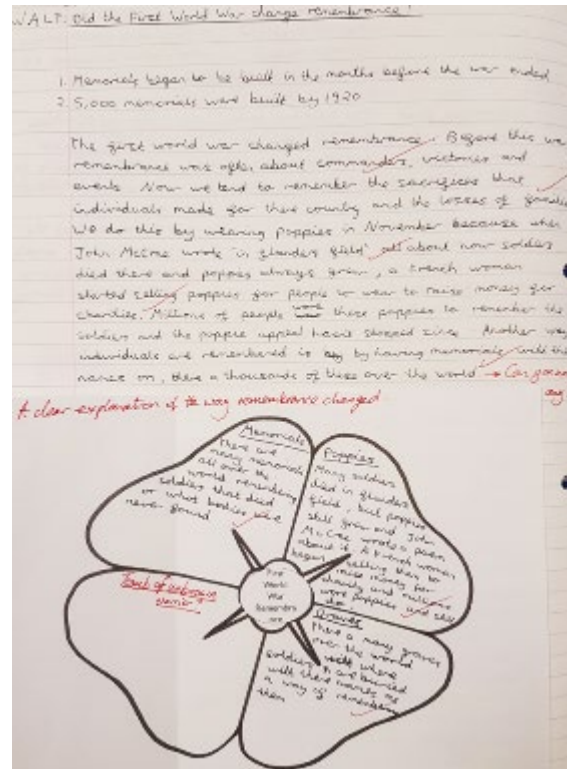 W.A.L.T: Did the First World War change remembrance?
1. Memorials began to be built in the months before the war ended
2. 5,000 memorials were built by 1920
The first world war changed remembrance. Before this war
remembrance was often about commanders, victories and
events. Now we tend to remember the sacrifices that
individuals made for there country and the losses of
We do this by wearing poppies in November because when
John McCrae wrote 'in flanders field' all about how soldiers
died there and poppies always grew, a french woman
started selling poppies for people to wear to raise money for
charities. Millions of people wore these poppies to remember the
soldiers and the poppie appeal hasn't stopped since. Another way
individuals are remembered is by having memorials with the
names on, there a thousands of these over the world → Can you
A clear explanation of the way remembrance changed
Memorials
There are
many memorials
all over the
world remembering
soldiers that died
or what bodies were
never found
Poppies
Many soldiers
died in flanders
field, but poppies
still grew and John
McCrae wrote a poem
about it. A french woman
began selling them to
raise money for
charity and millions
wore poppies and still
do.
Tomb of unknown
warrior
First
World
War
Remembra
nce
Graves
There a many graves
over the world
where
soldiers are buried
with there names as
a way of remembering
them